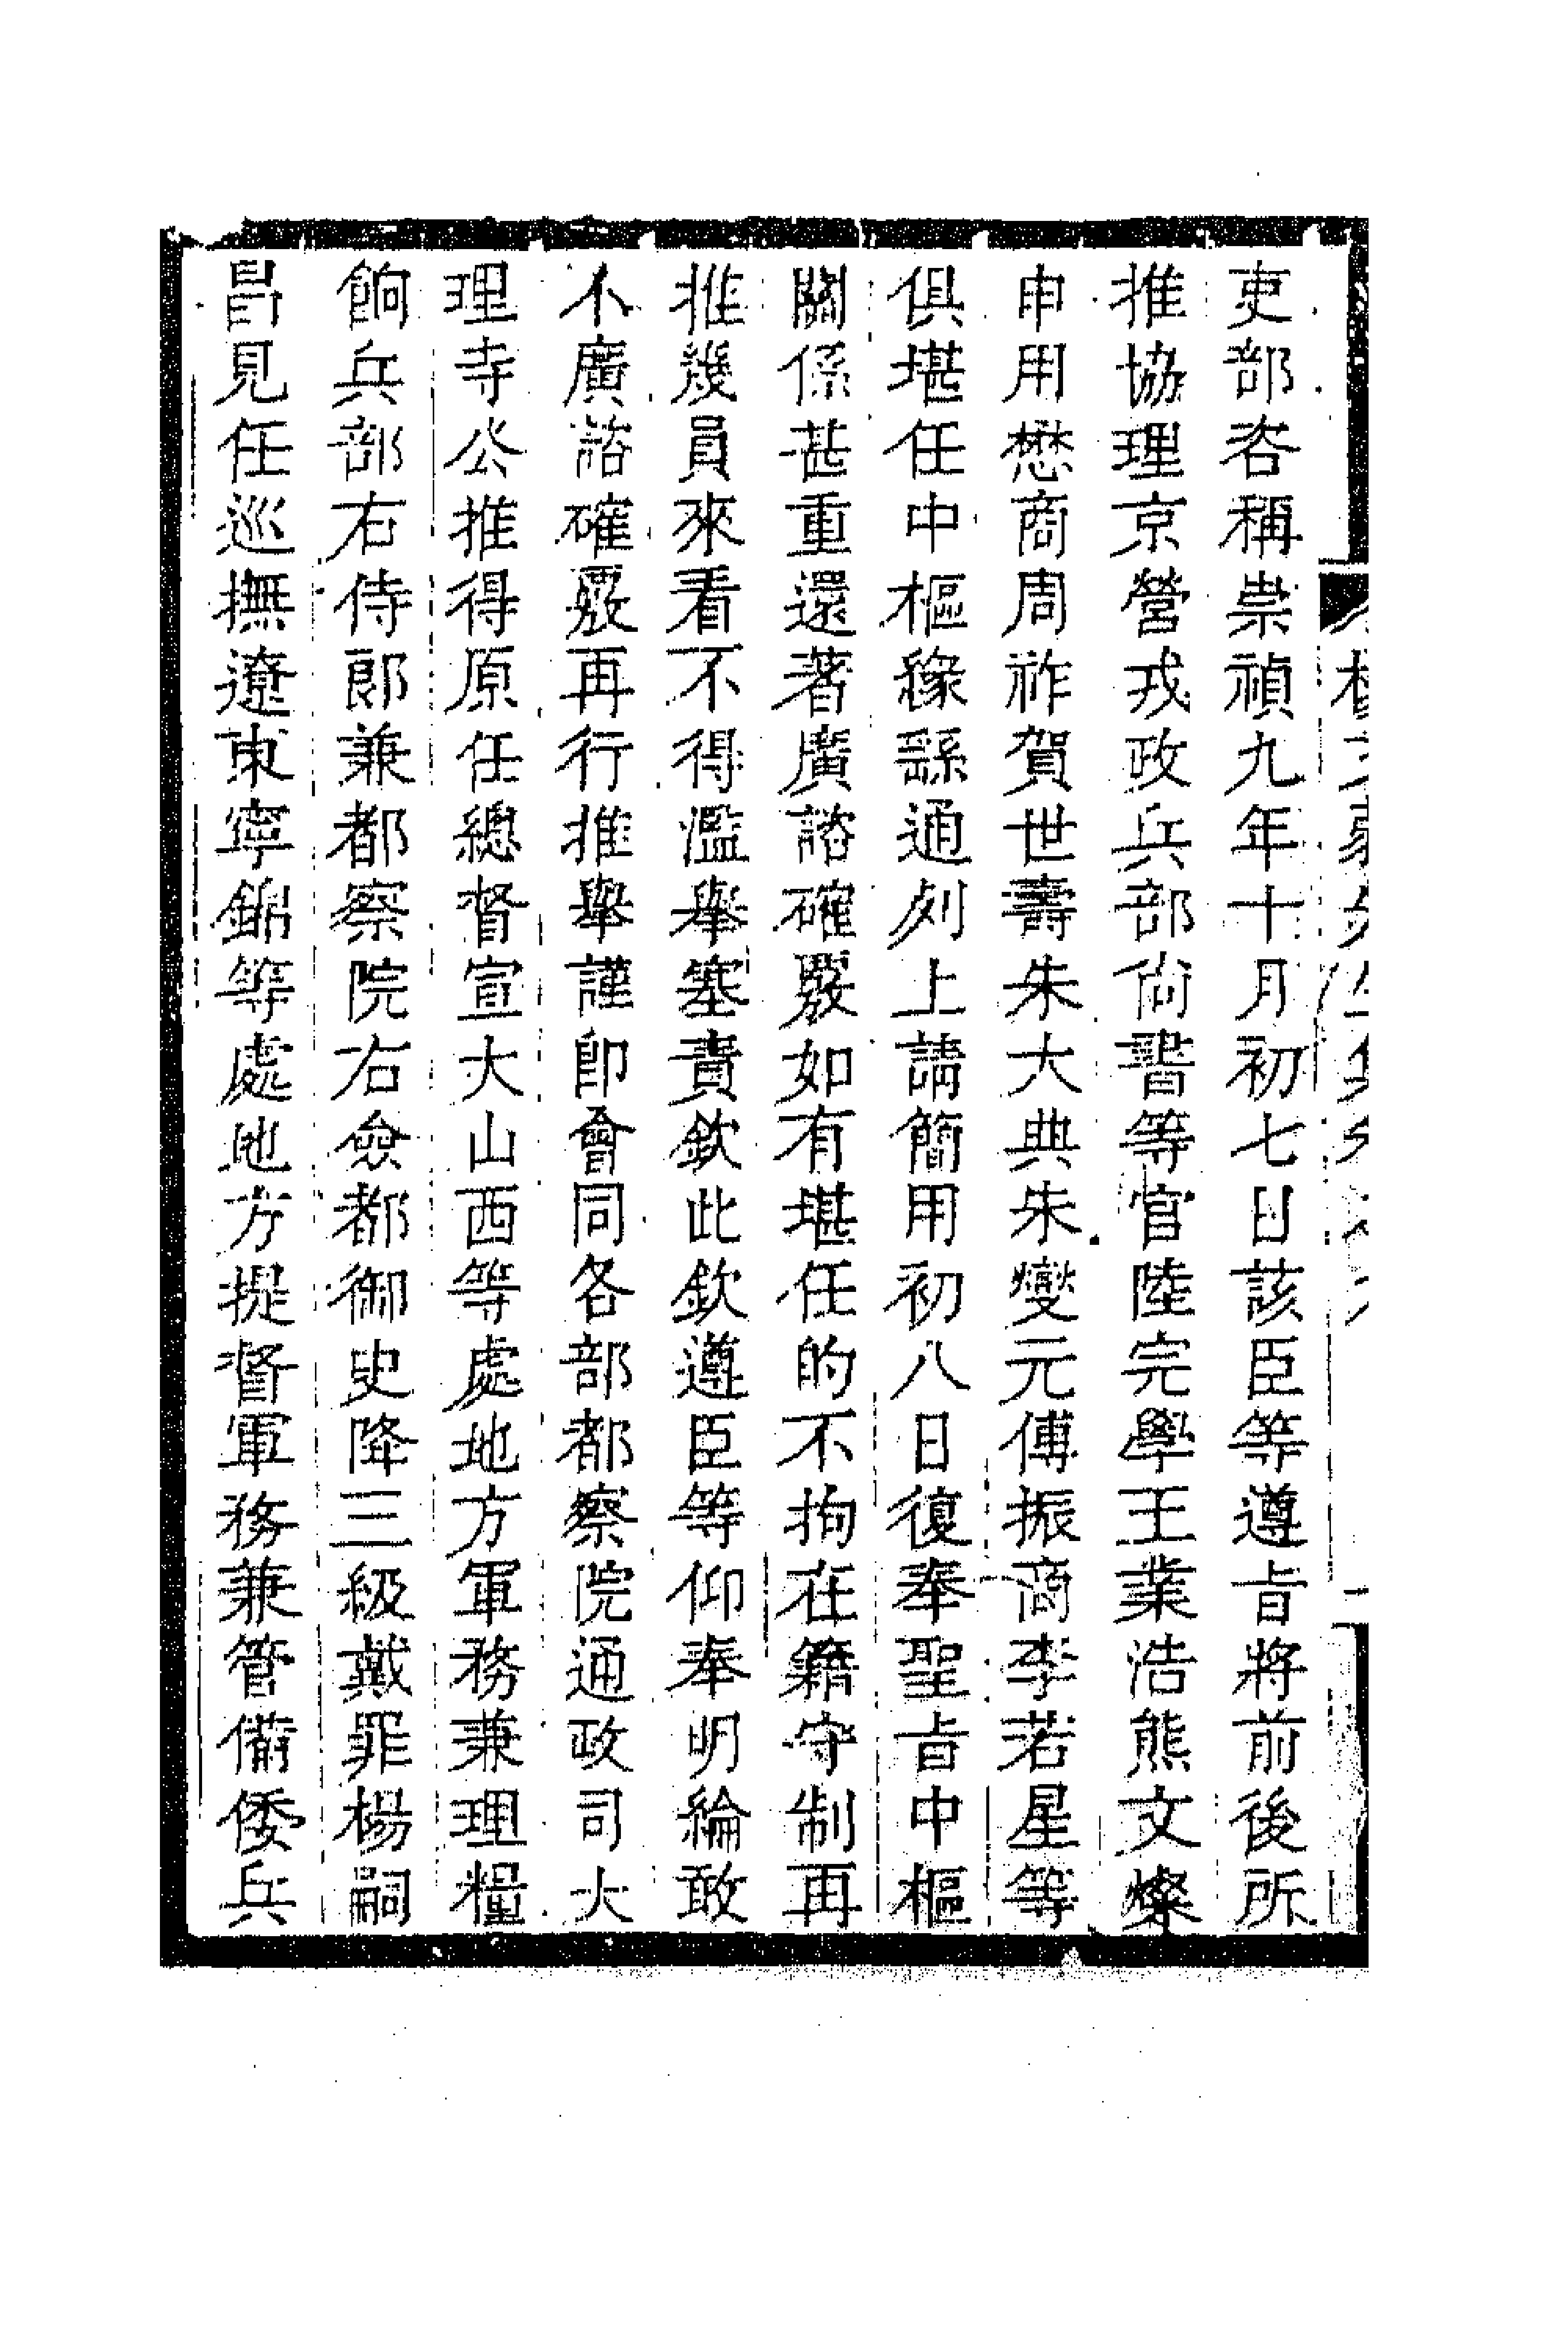 吏部咨稱崇禎九年十月初七日該臣等遵旨將前後所
推協理京營戎政兵部尚書等官陸完學王業浩熊文燦
申用懋商周祚賀世壽朱大典朱燮元傅振商李若星等
俱堪任中樞緣繇通列上請簡用初八日復奉聖旨中樞
關係甚重還著廣諮確覈如有堪任的不拘在籍守制再
推幾員來看不得濫舉塞責欽此欽遵臣等仰奉明綸敢
不廣諮確覈再行推舉謹卽會同各部都察院通政司大
理寺公推得原任總督宣大山西等處地方軍務兼理糧
餉兵部右侍郎兼都察院右僉都御史降三級戴罪楊嗣
昌見任巡撫遼東寧錦等處地方提督軍務兼管備倭兵